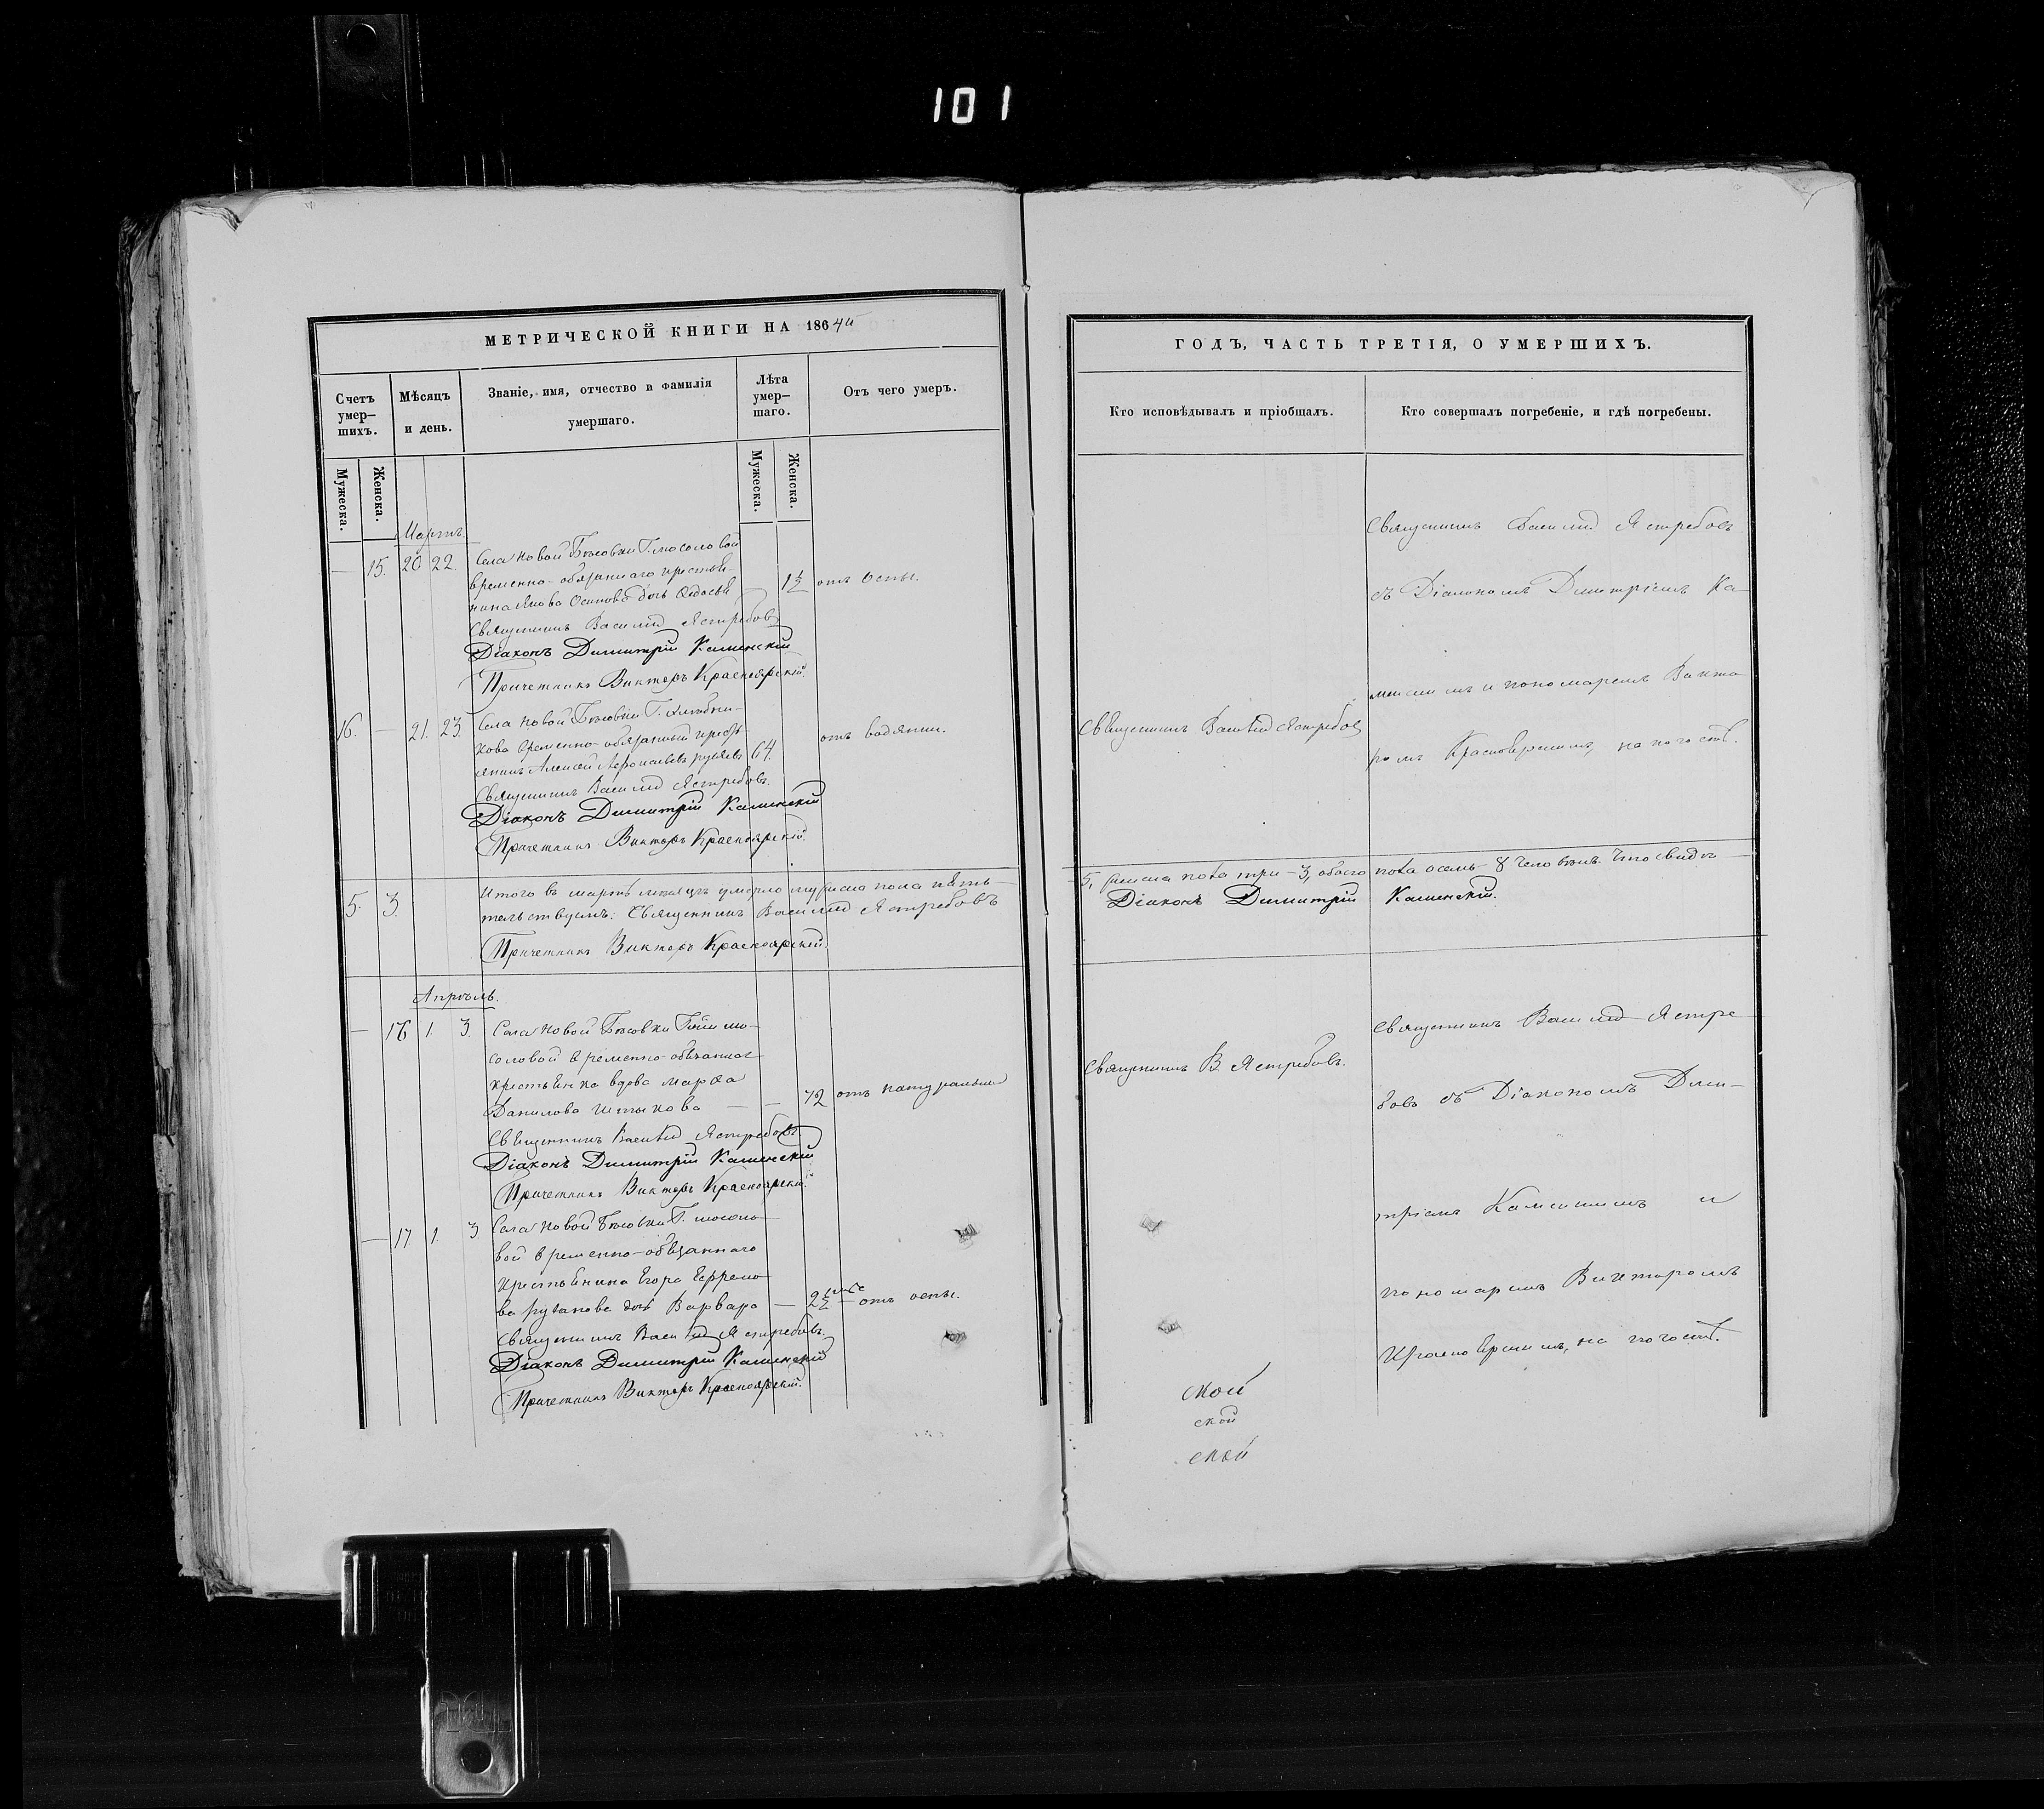 101
МЕТРИЧЕСКОЙ КНИГИ НА 1864й
Счетъ умер-шихъ.
Мѣсяцъ и день.
Званіе, имя, отчество и фамилія умершаго.
Лѣта умер-шаго.
Отъ чего умеръ.
Мужеска.
Женска.
Мужеска.
Женска.
Мартъ.
— 15. 20 22. Села Новой Бѣковки Г. Мосоловой
временно-обязаннаго крестья-
нина Якова Осипова дочь 1½ отъ оспы.
Священникъ Василій Ястребовъ
Діаконъ Димитрій Каменскій
Причетникъ Викторъ Красноярскій.
16. — 21. 23. Села Новой Г.
кова временно-обязанный кресть-
янинъ Алексей 64. отъ водянки.
Священникъ Василій Ястребовъ.
Діаконъ Димитрій Каменскій
Причетникъ Викторъ Красноярскій.
5. 3. Итого въ мартѣ месяцѣ умерло мужеска пола пять
тельствуемъ: Священникъ Василій Ястребовъ
Причетникъ Викторъ Красноярскій.
Апрѣль.
— 16 1. 3. Села Новой Г-жи Мо-
соловой временно-обязанная
крестьянка вдова Марфа
Данилова — — 72 отъ натуральной
Священникъ Василій Ястребовъ
Діаконъ Димитрій Каменскій
Причетникъ Викторъ Красноярскій.
— 17 1. 3 Села Новой Г. Мосоло-
вой временно-обязаннаго
крестьянина Егора Ефремо-
ва дочь Варвара — 2½ отъ оспы.
Священникъ Василій Ястребовъ.
Діаконъ Димитрій Каменскій
Причетникъ Викторъ Красноярскій.
ГОДЪ, ЧАСТЬ ТРЕТІЯ, О УМЕРШИХЪ.
Кто исповѣдывалъ и пріобщалъ.
Кто совершалъ погребеніе, и гдѣ погребены.
Священникъ Василій Ястребовъ
съ Діакономъ Димитріемъ Ка-
менскимъ и пономаремъ Викто-
Священникъ Василій Ястребовъ
ромъ Красноярскимъ, на погостѣ.
5, женска пола три-3, обоего пола осемь-8 человѣкъ. Что свидѣ-
Діаконъ Димитрій Каменскій.
Священникъ Василій Ястре-
Священникъ В. Ястребовъ.
бовъ съ Діакономъ Дими-
тріемъ Каменскимъ и
пономаремъ Викторомъ
Красноярскимъ, на погостѣ.
ской
ской
ской